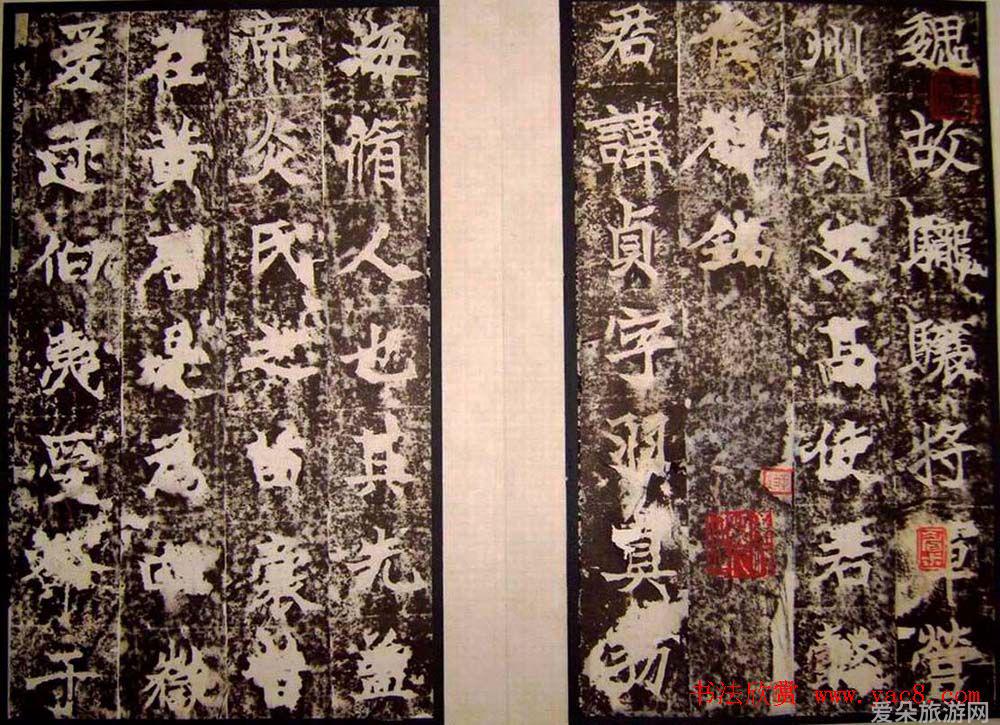 魏故龍驤將軍營
州刺史高使君懿
侯碑銘
君諱貞字羽真勃
海脩人也其先盖
帝炎氏之苗裔昔
在黃唐是為四嶽
爰逮伯夷受命于
书法欣赏 www.yac8.com
爱朵旅游网